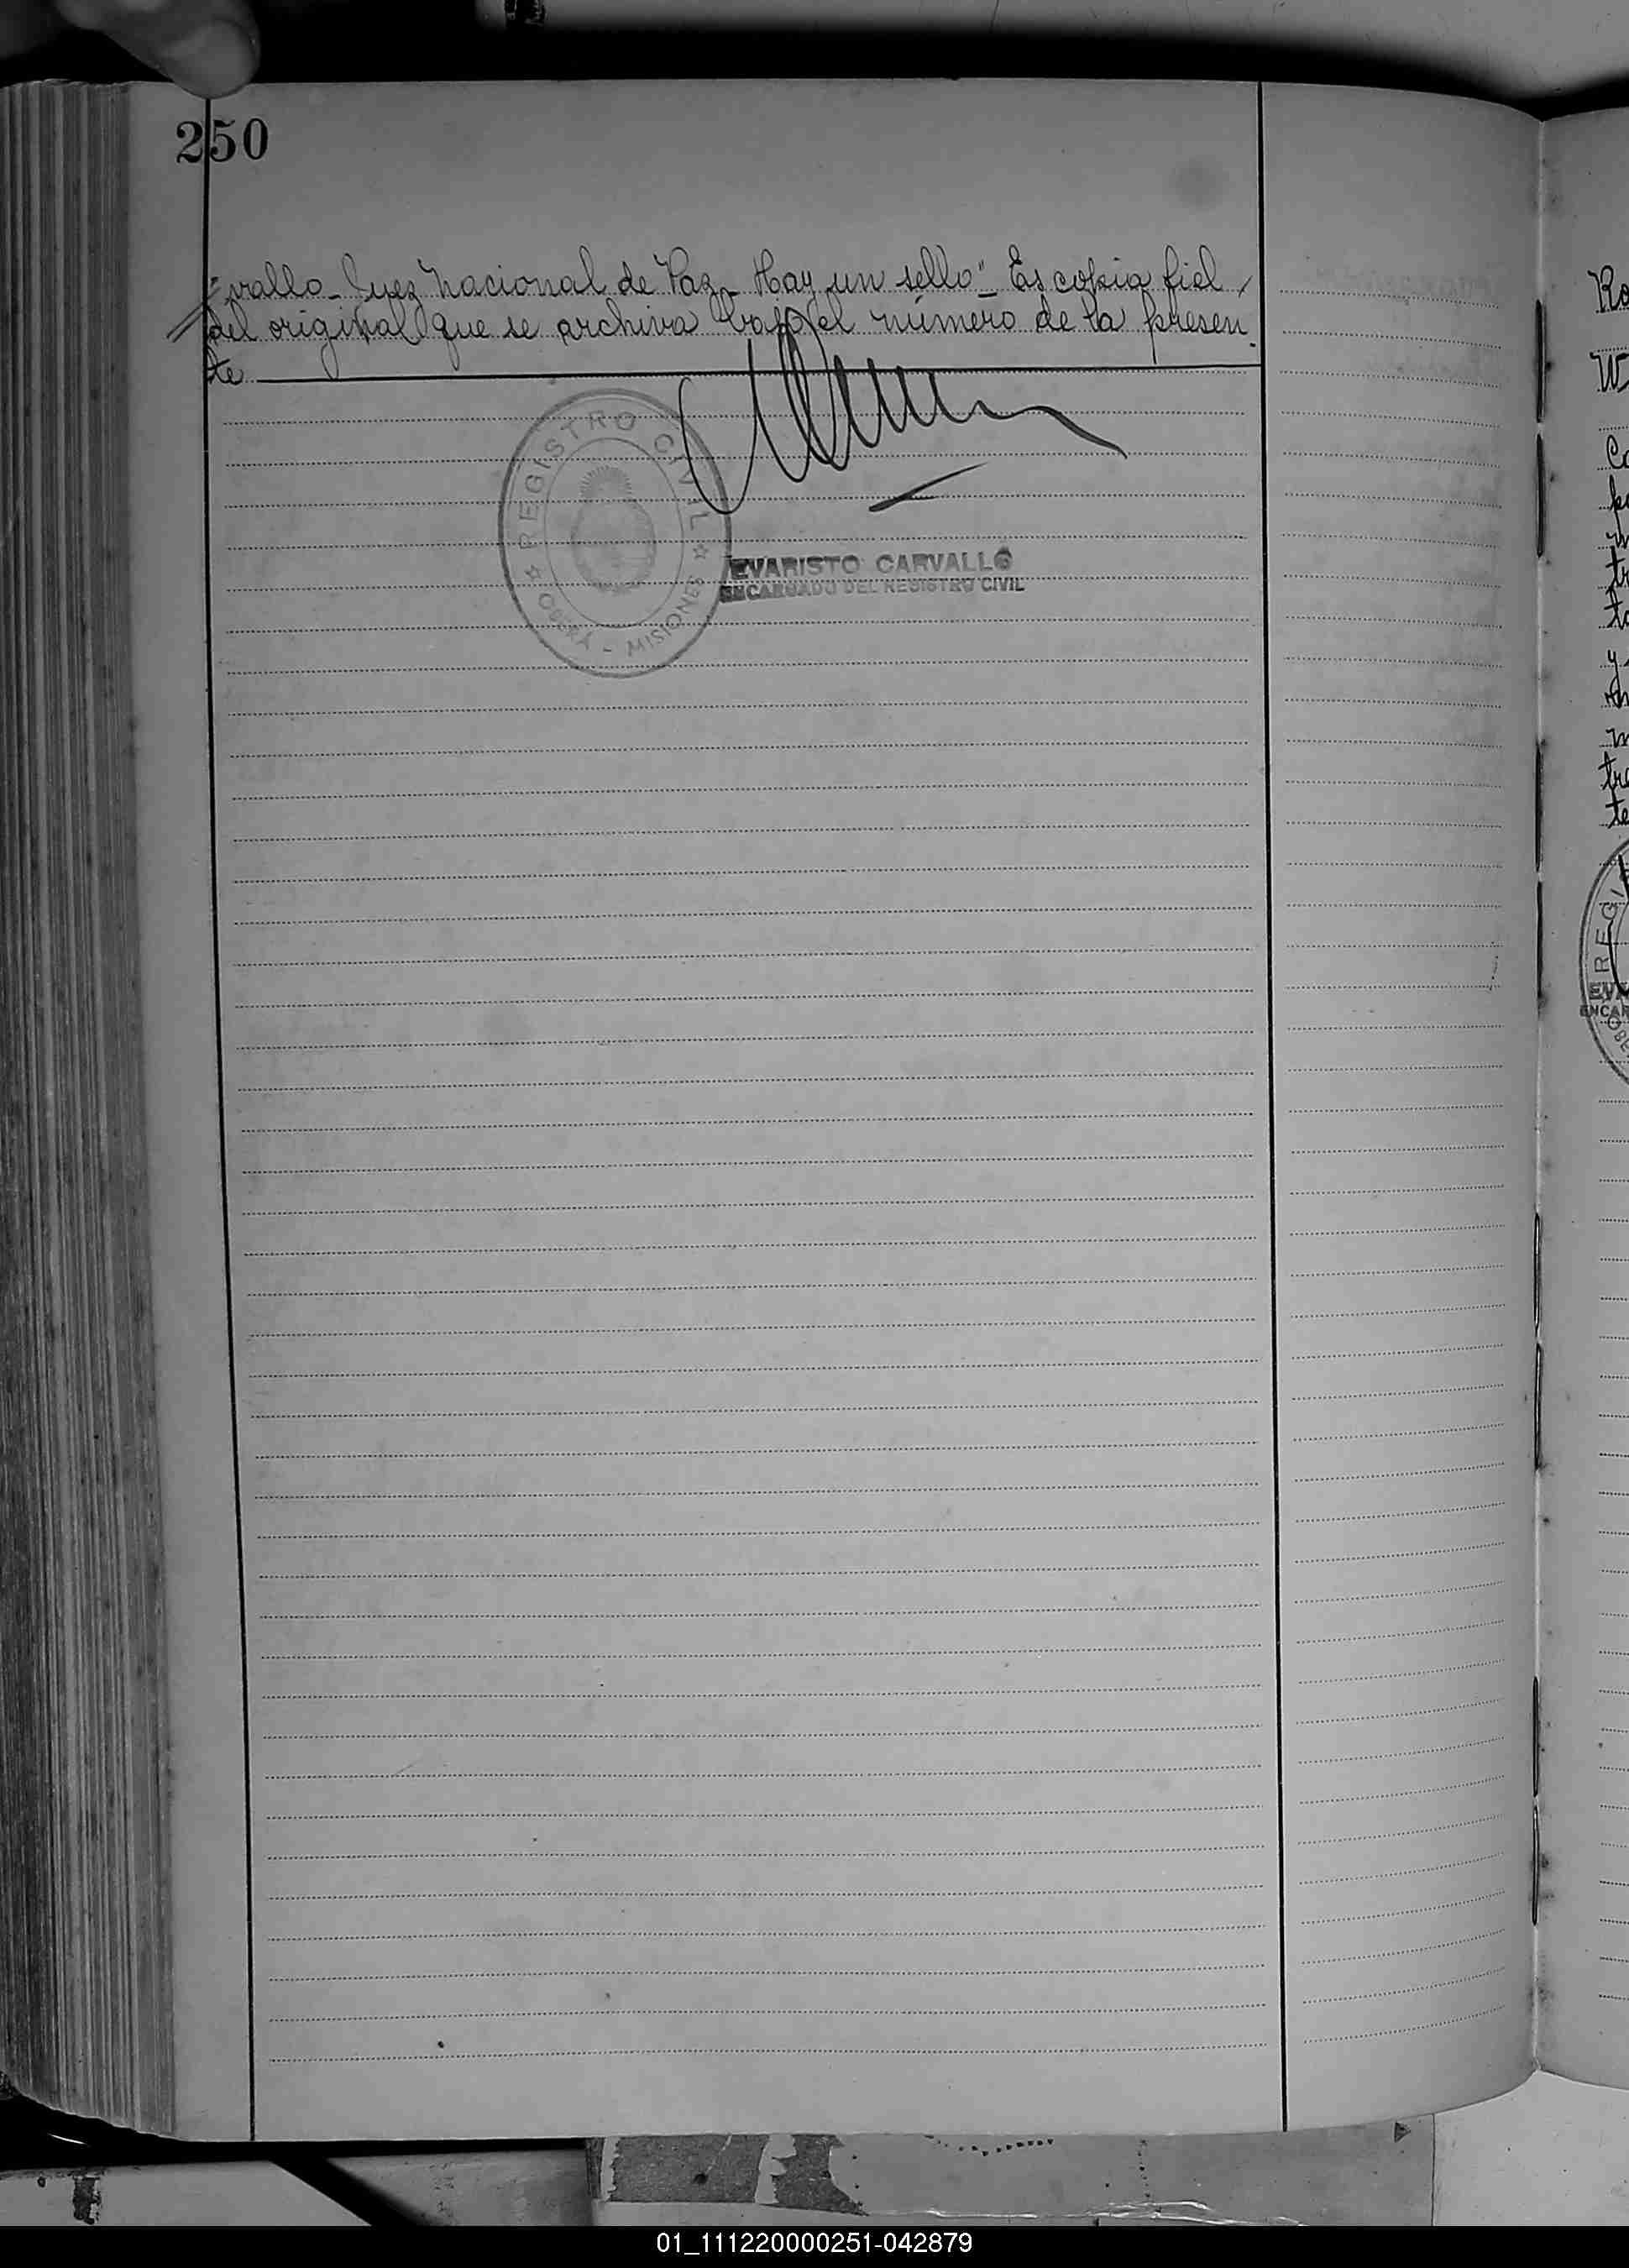 250
"vallo - Juez Nacional de Paz - Hay un sello" - Es copia fiel
del original que se archiva bajo el número de la presen
te
REGISTRO CIVIL
OBERÁ - MISIONES
EVARISTO CARVALLO
ENCARGADO DEL REGISTRO CIVIL
Ro
W
Co
y
te
REGI
EVA
ENCAR
OBE
01_111220000251-042879